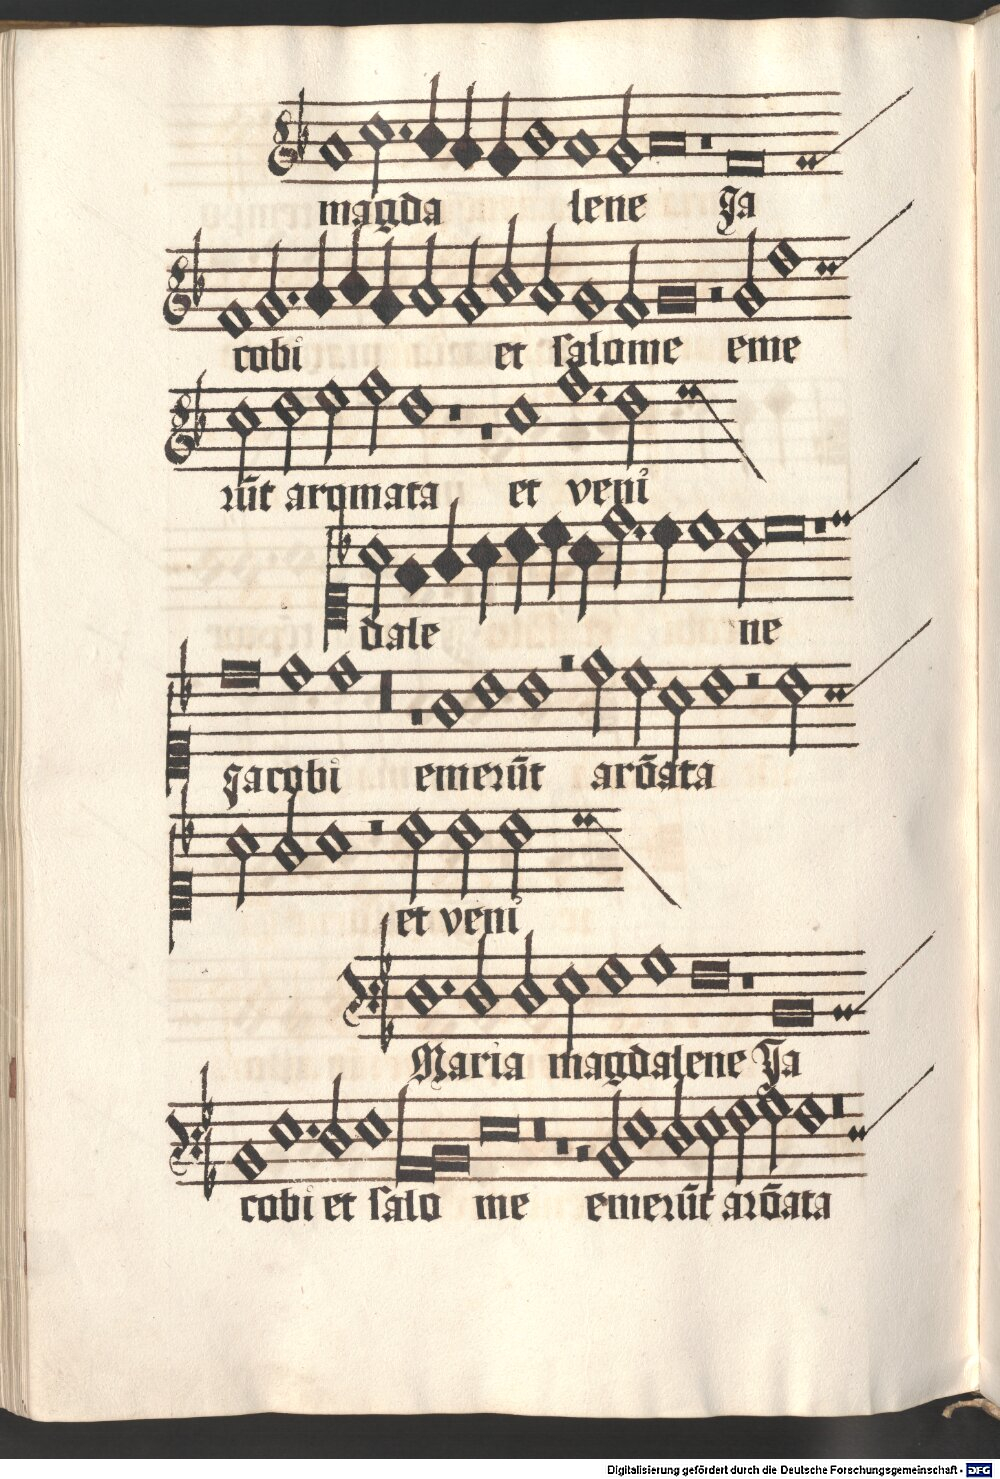 magda lene Ja
cobi et salome eme
rūt aromata et veni
dale ne
Jacobi emerūt arōata
et veni
Maria magdalene Ja
cobi et salo me emerūt arōata
Digitalisierung gefördert durch die Deutsche Forschungsgemeinschaft - DFG